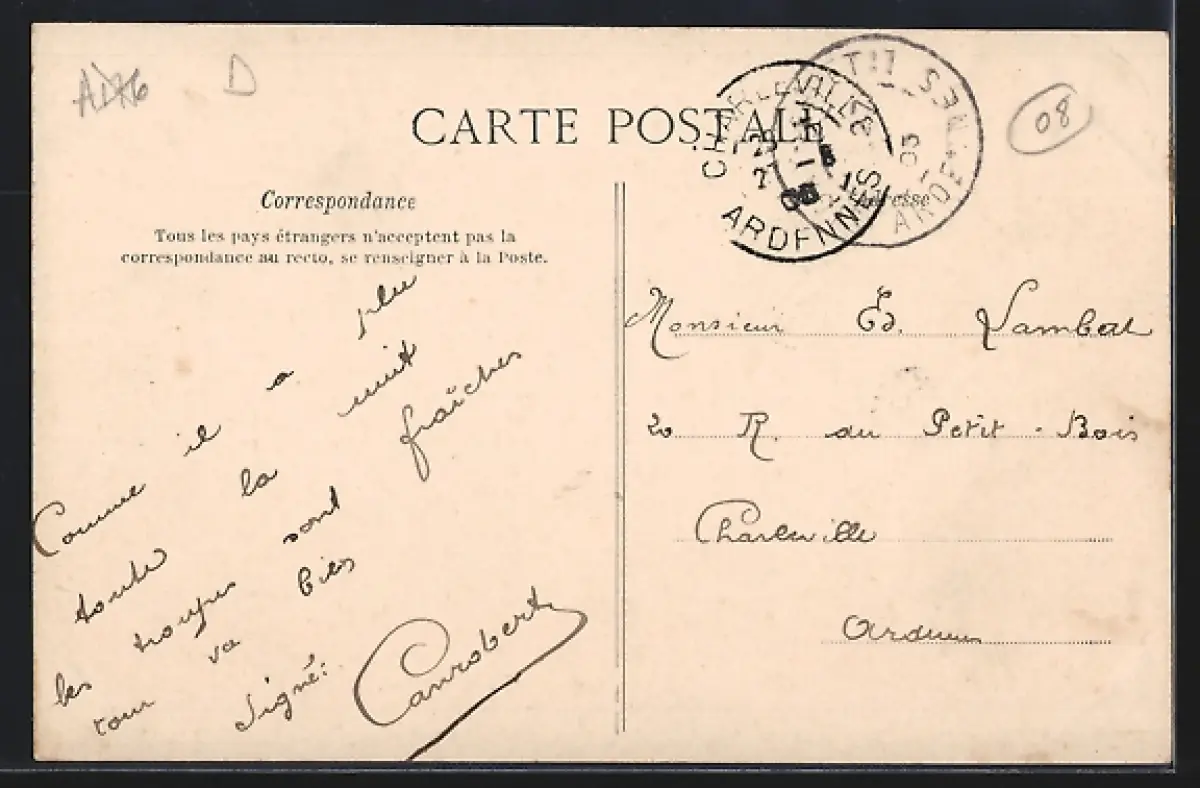 D
08
CARTE POSTALE
CHARLEVILLE
ARDENNES
Correspondance
Adresse
Tous les pays étrangers n'acceptent pas la
correspondance au recto, se renseigner à la Poste.
Comme il a plu
toute la nuit
les troupes sont fraîches
tout va bien
Signé: Canrobert
Monsieur Ed. Lambert
20 R. du Petit-Bois
Charleville
Ardennes